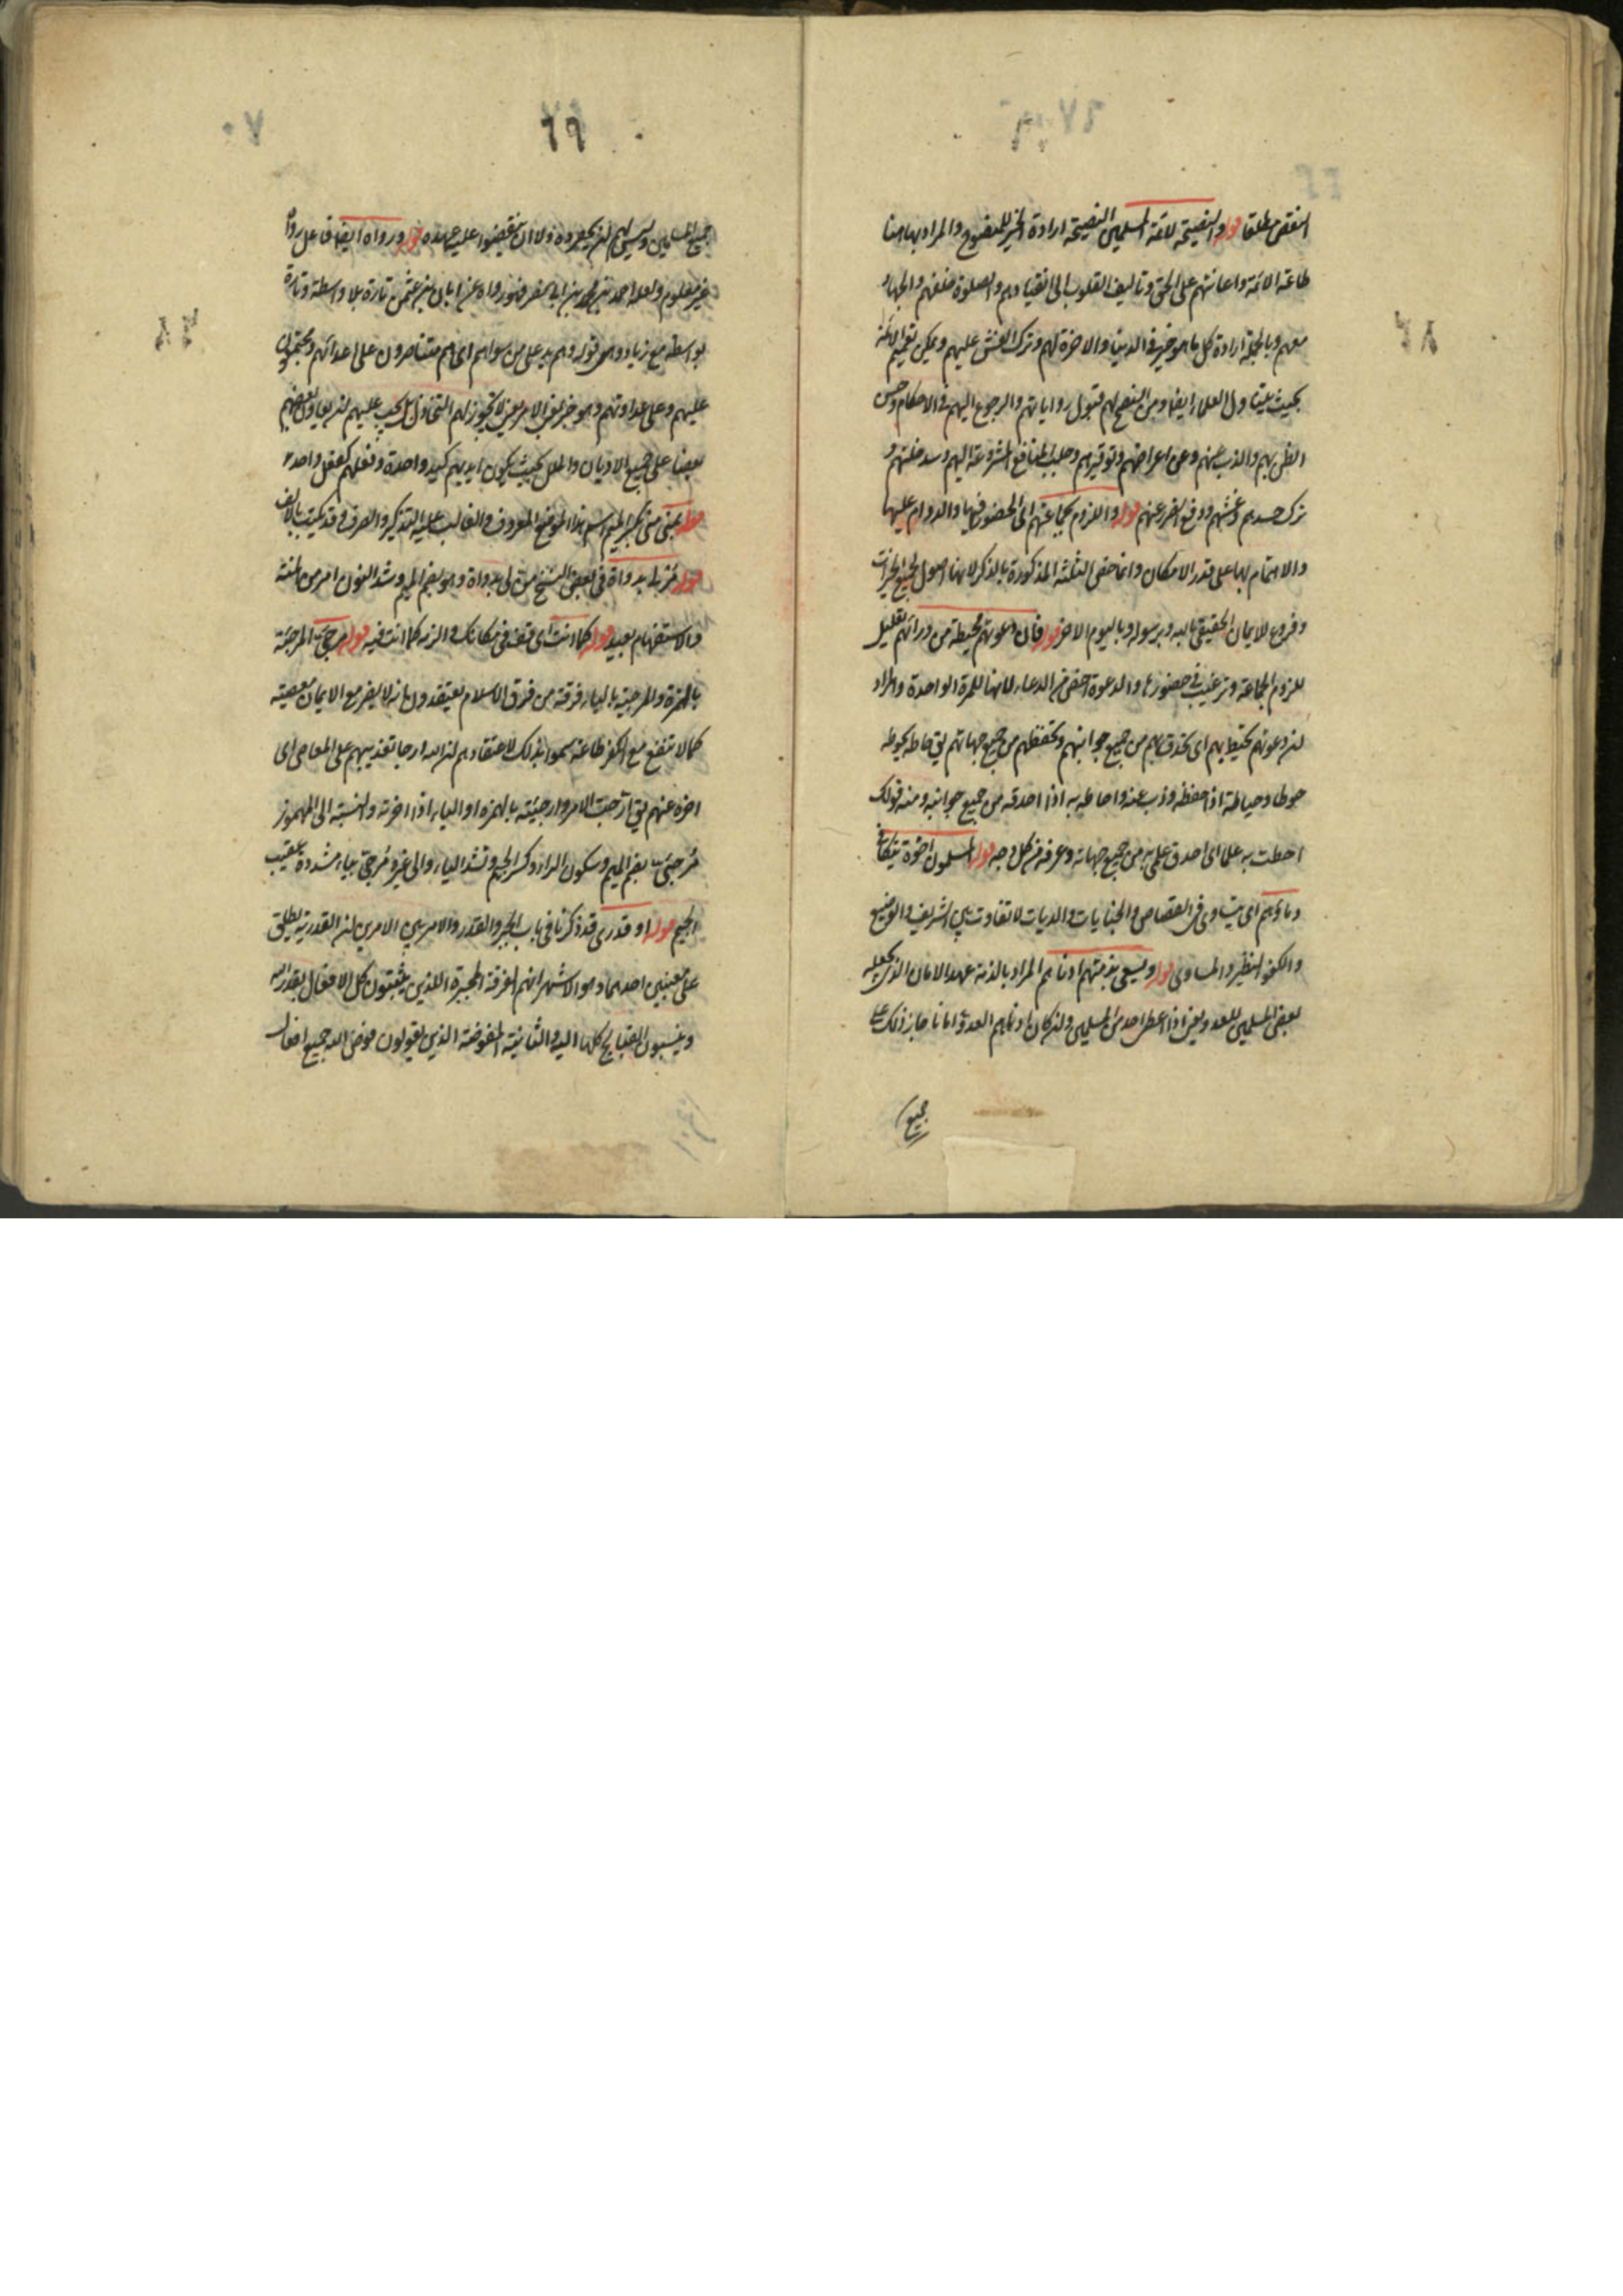 النقص مطلقا قوله والنصيحة لائمة المسلمين النصيحة ارادة الخير للمنصوح والمراد بها هنا
طاعة الائمة واعانتهم على الحق وتاليف القلوب الى انقيادهم والصلوة خلفهم والجهاد
معهم وبالجملة ارادة كل ما هو خير في الدنيا والاخرة لهم وترك الغش عليهم ويمكن تعميم الائمة
بحيث يتناول العلماء ايضا ومن النصح لهم قبول رواياتهم والرجوع اليهم في الاحكام وحسن
الظن بهم والذب عنهم وعن اعراضهم وتوقيرهم وجلب المنافع المشروعة اليهم وسد خلتهم و
ترك حسدهم وغشهم ودفع الضرر عنهم قوله واللزوم لجماعتهم اى الحضور فيها والدوام عليها
والاهتمام بها على قدر الامكان وانما خص الثلثة المذكورة بالذكر لانها اصول لجميع الخيرات
وفروع للايمان الحقيقى بالله وبرسوله وباليوم الاخر قوله فان دعوتهم محيطة من ورائهم تعليل
للزوم الجماعة وترغيب في حضورها والدعوة اخص من الدعاء لانها للمرة الواحدة والمراد
ان دعوتهم تحيط بهم اى تحدق بهم من جميع جوانبهم وتحفظهم من جميع جهاتهم يق حاطه يحوطه
حوطا وحياطة اذا حفظه وذب عنه واحاط به اذا احدقه من جميع جوانبه ومنه قولك
احطت به علما اى احدق علمى به من جميع جهاته وعرفه من كل وجه قوله المسلمون اخوة تتكافى
دماؤهم اى يتساوى في القصاص والجنايات والديات لا تفاوت بين الشريف والوضيع
والكفو النظير والمساوى قوله ويسعى بذمتهم ادناهم المراد بالذمة عهد الامان الذى يجعله
بعض المسلمين للعدو يعنى اذا اعطى احد من المسلمين وان كان ادناهم العدو امانا جاز ذلك على
جميع
٦٩
جميع المسلمين وليس لهم ان يخفروه ولا ان ينقضوا عليه عهده قوله ورواه ايضا فاعل رواه
غير معلوم ولعله احمد بن محمد بن ابى نصر فهو رواه عن ابان بن عثمن تارة بلا واسطة وتارة
بواسطة مع زياد وهو قوله وهم يد على من سواهم اى هم متناصرون على اعدائهم ومجتمعون
عليهم وعلى عداوتهم وهو خبر بمعنى الامر يعنى لا يجوز لهم التخاذل بل يجب عليهم ان يعاون بعضهم
بعضا على جميع الاديان والملل بحيث يكون ايديهم كيد واحدة وفعلهم كفعل واحد
قوله بمنى منى بكسر الميم اسم لهذا الموضع المعروف والغالب عليه التذكير والصرف وقد يكتب بالالف
قوله من لى بدواة في بعض النسخ من لى بدواة وهو بضم الميم وشد النون امر من المنة
والاستفهام بعيد قوله كما انت اى قف في مكانك والزم كما انت فيه قوله مرجئ المرجئة
بالهمزة والمرجية بالياء فرقة من فرق الاسلام يعتقدون بانه لا يضر مع الايمان معصية
كما لا تنفع مع الكفر طاعة سموا بذلك لاعتقادهم ان الله ارجا تعذيبهم على المعاصى اى
اخره عنهم يق ارجيت الامر وارجئته بالهمزة او الياء اذا اخرته والنسبة الى المهموز
مرجئى بضم الميم وسكون الراء وكسر الجيم وتشد الياء والى غيره مرجى بياء مشددة عقيب
الجيم قوله او قدرى قد ذكرنا في باب الجبر والقدر والامر بين الامرين ان القدرية يطلق
على معنيين احدهما وهو الاشهر انهم الفرقة المجبرة اللذين يثبتون كل الافعال بقدر الله
وينسبون القبايح كلها اليه والثانية المفوضة الذين يقولون فوض الله جميع افعال